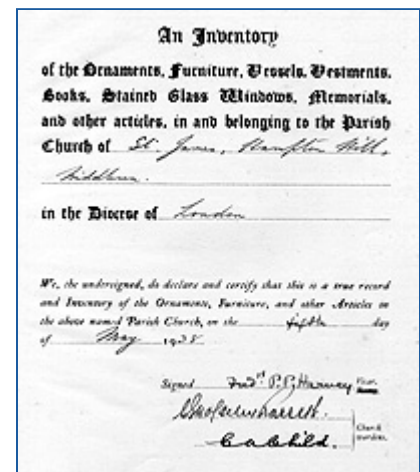 An Inventory
of the Ornaments, Furniture, Vessels, Vestments,
Books, Stained Glass Windows, Memorials,
and other articles, in and belonging to the Parish
Church of St. James, Hampton Hill,
Middlesex.
in the Diocese of London
We, the undersigned, do declare and certify that this is a true record
and Inventory of the Ornaments, Furniture, and other Articles in
the above named Parish Church, on the fifth day
of May 1938
Signed Fredk P. P. Harvey Vicar.
Barrett. Church
C A Child. wardens.